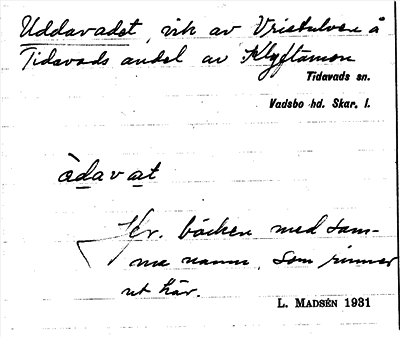 Uddavadet, vik av Vristulven å
Tidavads andel av Klyftamon
Tidavads sn.
Vadsbo hd. Skar. l.
àdavat
Jfr. bäcken med sam-
ma namn, som rinner
ut här.
L. MADSÉN 1931